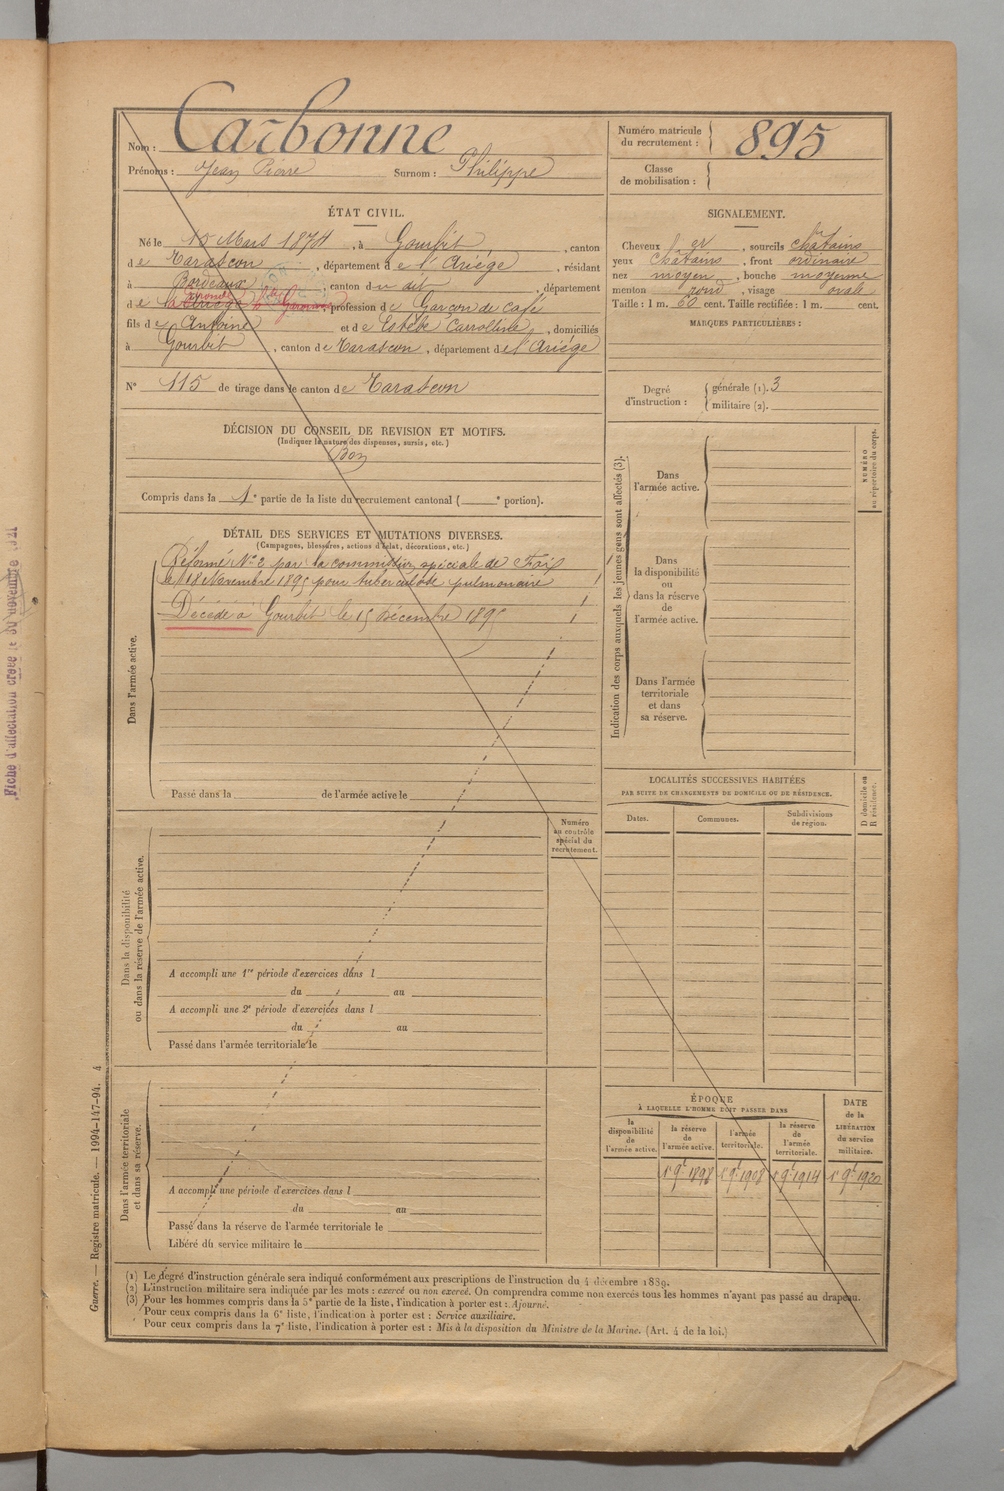 Nom : Carbonne
Prénoms : Jean Pierre Surnom : Philippe
Numéro matricule
du recrutement : 895
Classe
de mobilisation :
ÉTAT CIVIL.
Né le 15 Mars 1874, à Gourbit, canton
de Tarascon, département de l'Ariége, résidant
à Bordeaux, canton du dit, département
de la Gironde, profession de Garçon de café
fils de Antoine et de Estèbe Carroline, domiciliés
à Gourbit, canton de Tarascon, département de l'Ariége
N° 115 de tirage dans le canton de Tarascon
SIGNALEMENT.
Cheveux, sourcils châtains
yeux châtains, front ordinaire
nez moyen, bouche moyenne
menton rond, visage ovale
Taille : 1 m. 60 cent. Taille rectifiée : 1 m. cent.
MARQUES PARTICULIÈRES :
Degré
d'instruction :
générale (1). 3
militaire (2).
DÉCISION DU CONSEIL DE REVISION ET MOTIFS.
(Indiquer la nature des dispenses, sursis, etc.)
Bon
Compris dans la 1e partie de la liste du recrutement cantonal ( e portion).
DÉTAIL DES SERVICES ET MUTATIONS DIVERSES.
(Campagnes, blessures, actions d'éclat, décorations, etc.)
Dans l'armée active.
Réformé N° 2 par la commission spéciale de Foix
le 18 Novembre 1895 pour tuberculose pulmonaire
Décédé à Gourbit le 15 Décembre 1895
Passé dans la de l'armée active le
Indication des corps auxquels les jeunes gens sont affectés (3).
NUMÉRO
au répertoire du corps.
Dans
l'armée active.
Dans
la disponibilité
ou
dans la réserve
de
l'armée active.
Dans l'armée
territoriale
et dans
sa réserve.
LOCALITÉS SUCCESSIVES HABITÉES
PAR SUITE DE CHANGEMENTS DE DOMICILE OU DE RÉSIDENCE.
D domicile ou
R résidence.
Dates. Communes. Subdivisions
de région.
Numéro
au contrôle
spécial du
recrutement.
Dans la disponibilité
ou dans la réserve de l'armée active.
A accompli une 1re période d'exercices dans l
du au
A accompli une 2e période d'exercices dans l
du au
Passé dans l'armée territoriale le
Dans l'armée territoriale
et dans sa réserve.
A accompli une période d'exercices dans l
du au
Passé dans la réserve de l'armée territoriale le
Libéré du service militaire le
ÉPOQUE
À LAQUELLE L'HOMME DOIT PASSER DANS
la
disponibilité
de
l'armée active.
la réserve
de
l'armée active.
l'armée
territoriale.
la réserve
de
l'armée
territoriale.
DATE
de la
LIBÉRATION
du service
militaire.
1er 9e 1898 1er 9e 1908 1er 9e 1914 1er 9e 1920
(1) Le degré d'instruction générale sera indiqué conformément aux prescriptions de l'instruction du 4 décembre 1889.
(2) L'instruction militaire sera indiquée par les mots : exercé ou non exercé. On comprendra comme non exercés tous les hommes n'ayant pas passé au drapeau.
(3) Pour les hommes compris dans la 5e partie de la liste, l'indication à porter est : Ajourné.
Pour ceux compris dans la 6e liste, l'indication à porter est : Service auxiliaire.
Pour ceux compris dans la 7e liste, l'indication à porter est : Mis à la disposition du Ministre de la Marine. (Art. 4 de la loi.)
Guerre. — Registre matricule. — 1994-147-94. 4
Fiche d'affectation créée le 30 novembre 1921